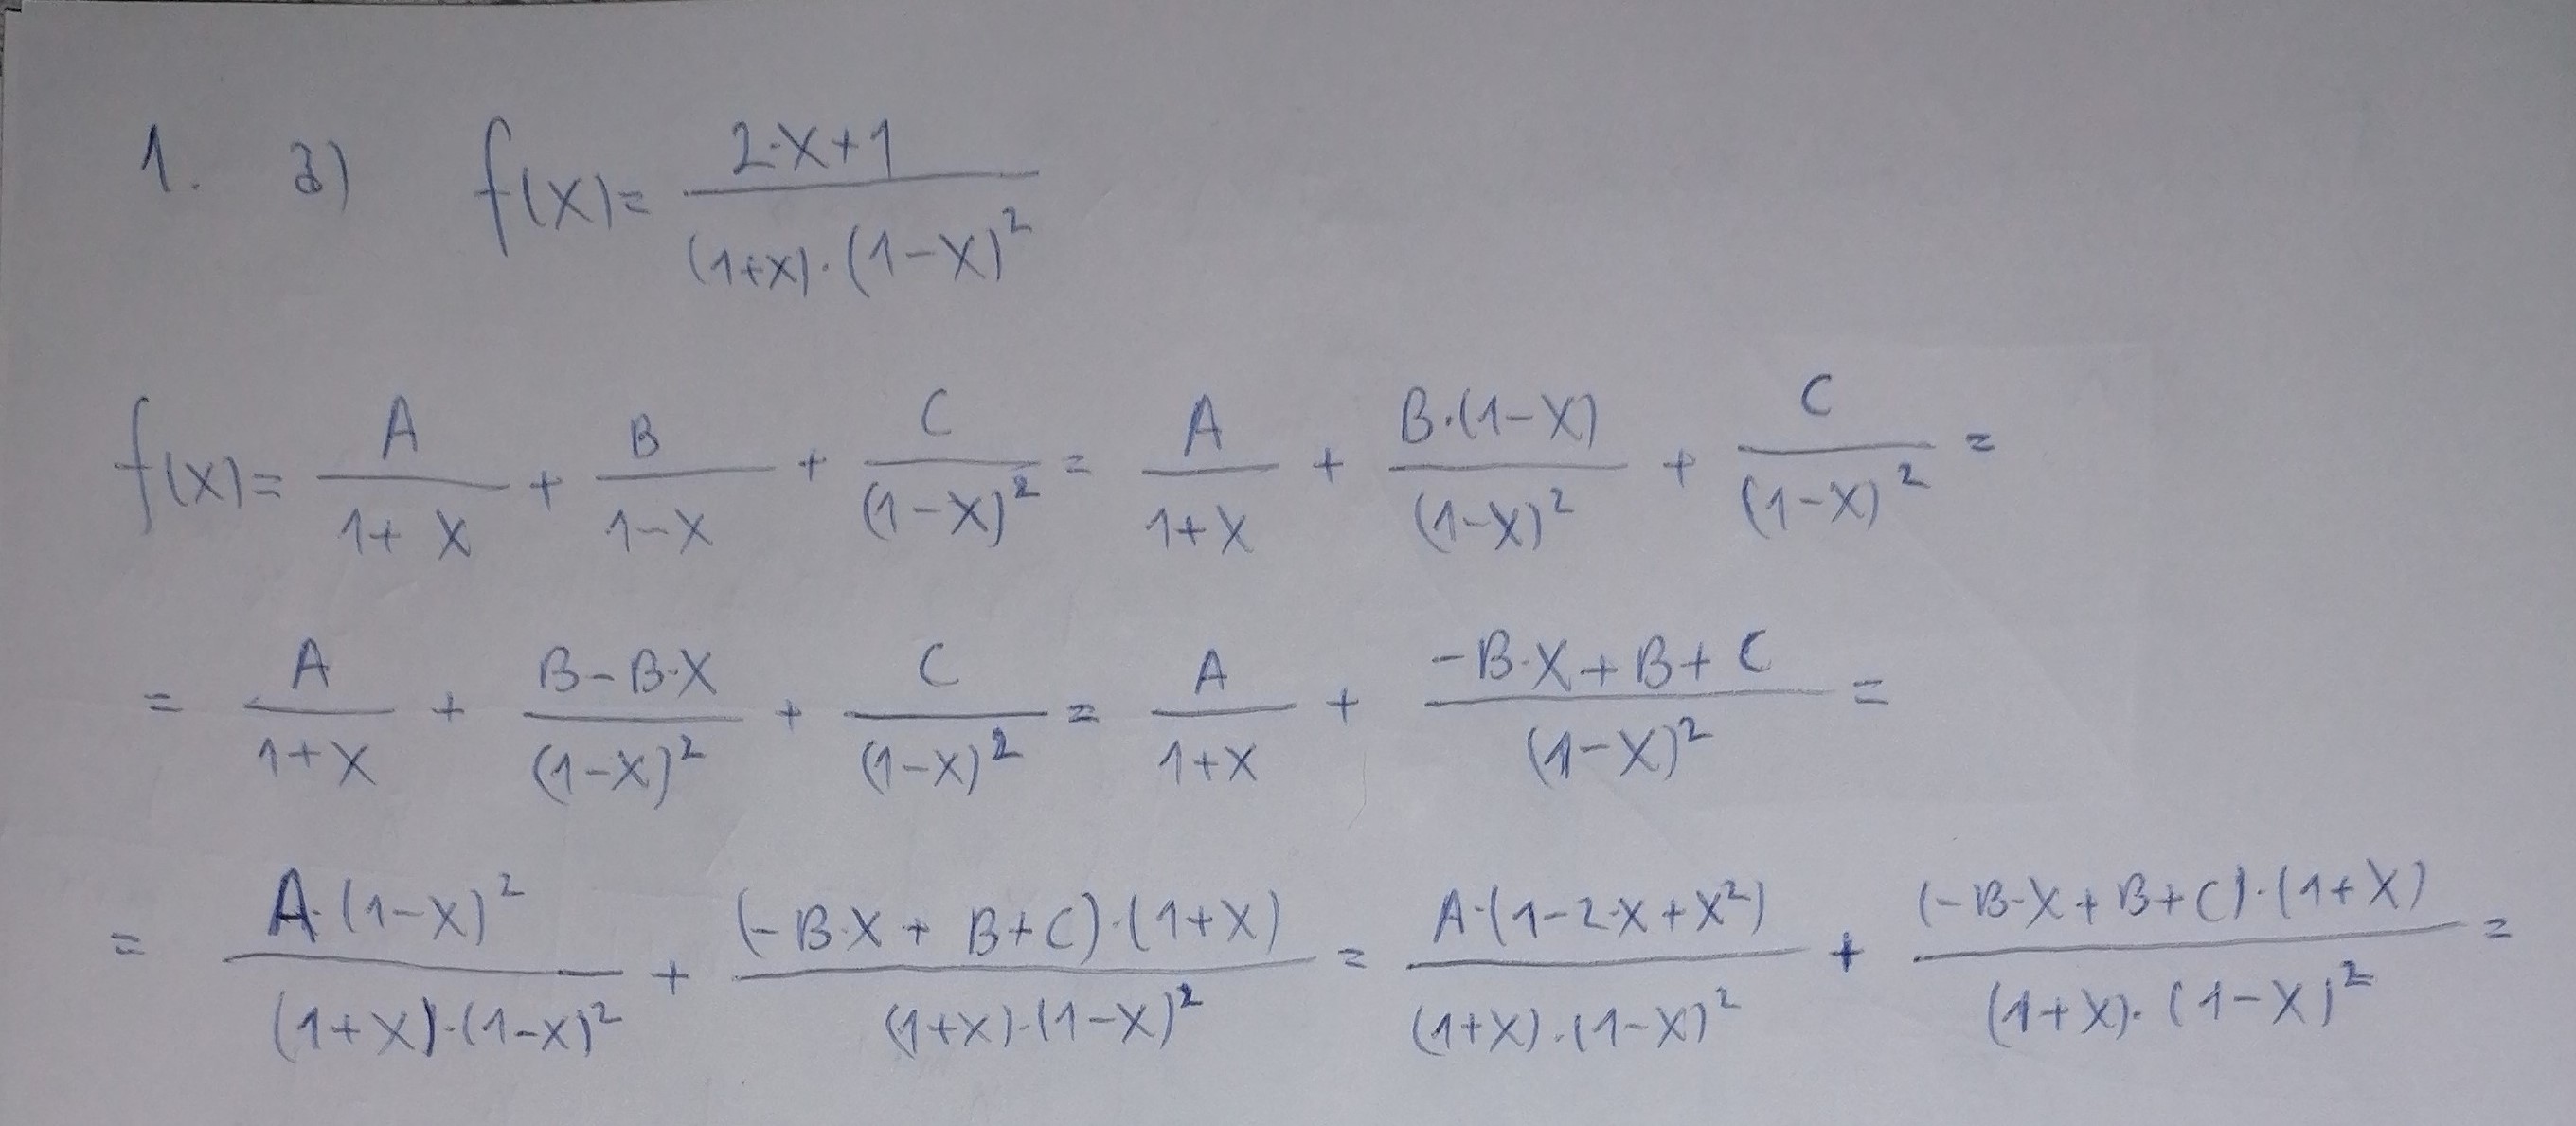 1. a) f(x)= \frac{2·x+1}{(1+x)·(1-x)^2}
f(x)= \frac{A}{1+x} + \frac{B}{1-x} + \frac{C}{(1-x)^2} = \frac{A}{1+x} + \frac{B·(1-x)}{(1-x)^2} + \frac{C}{(1-x)^2} =
= \frac{A}{1+x} + \frac{B-B·x}{(1-x)^2} + \frac{C}{(1-x)^2} = \frac{A}{1+x} + \frac{-B·x+B+C}{(1-x)^2} =
= \frac{A·(1-x)^2}{(1+x)·(1-x)^2} + \frac{(-B·x+B+C)·(1+x)}{(1+x)·(1-x)^2} = \frac{A·(1-2·x+x^2)}{(1+x)·(1-x)^2} + \frac{(-B·x+B+C)·(1+x)}{(1+x)·(1-x)^2} =